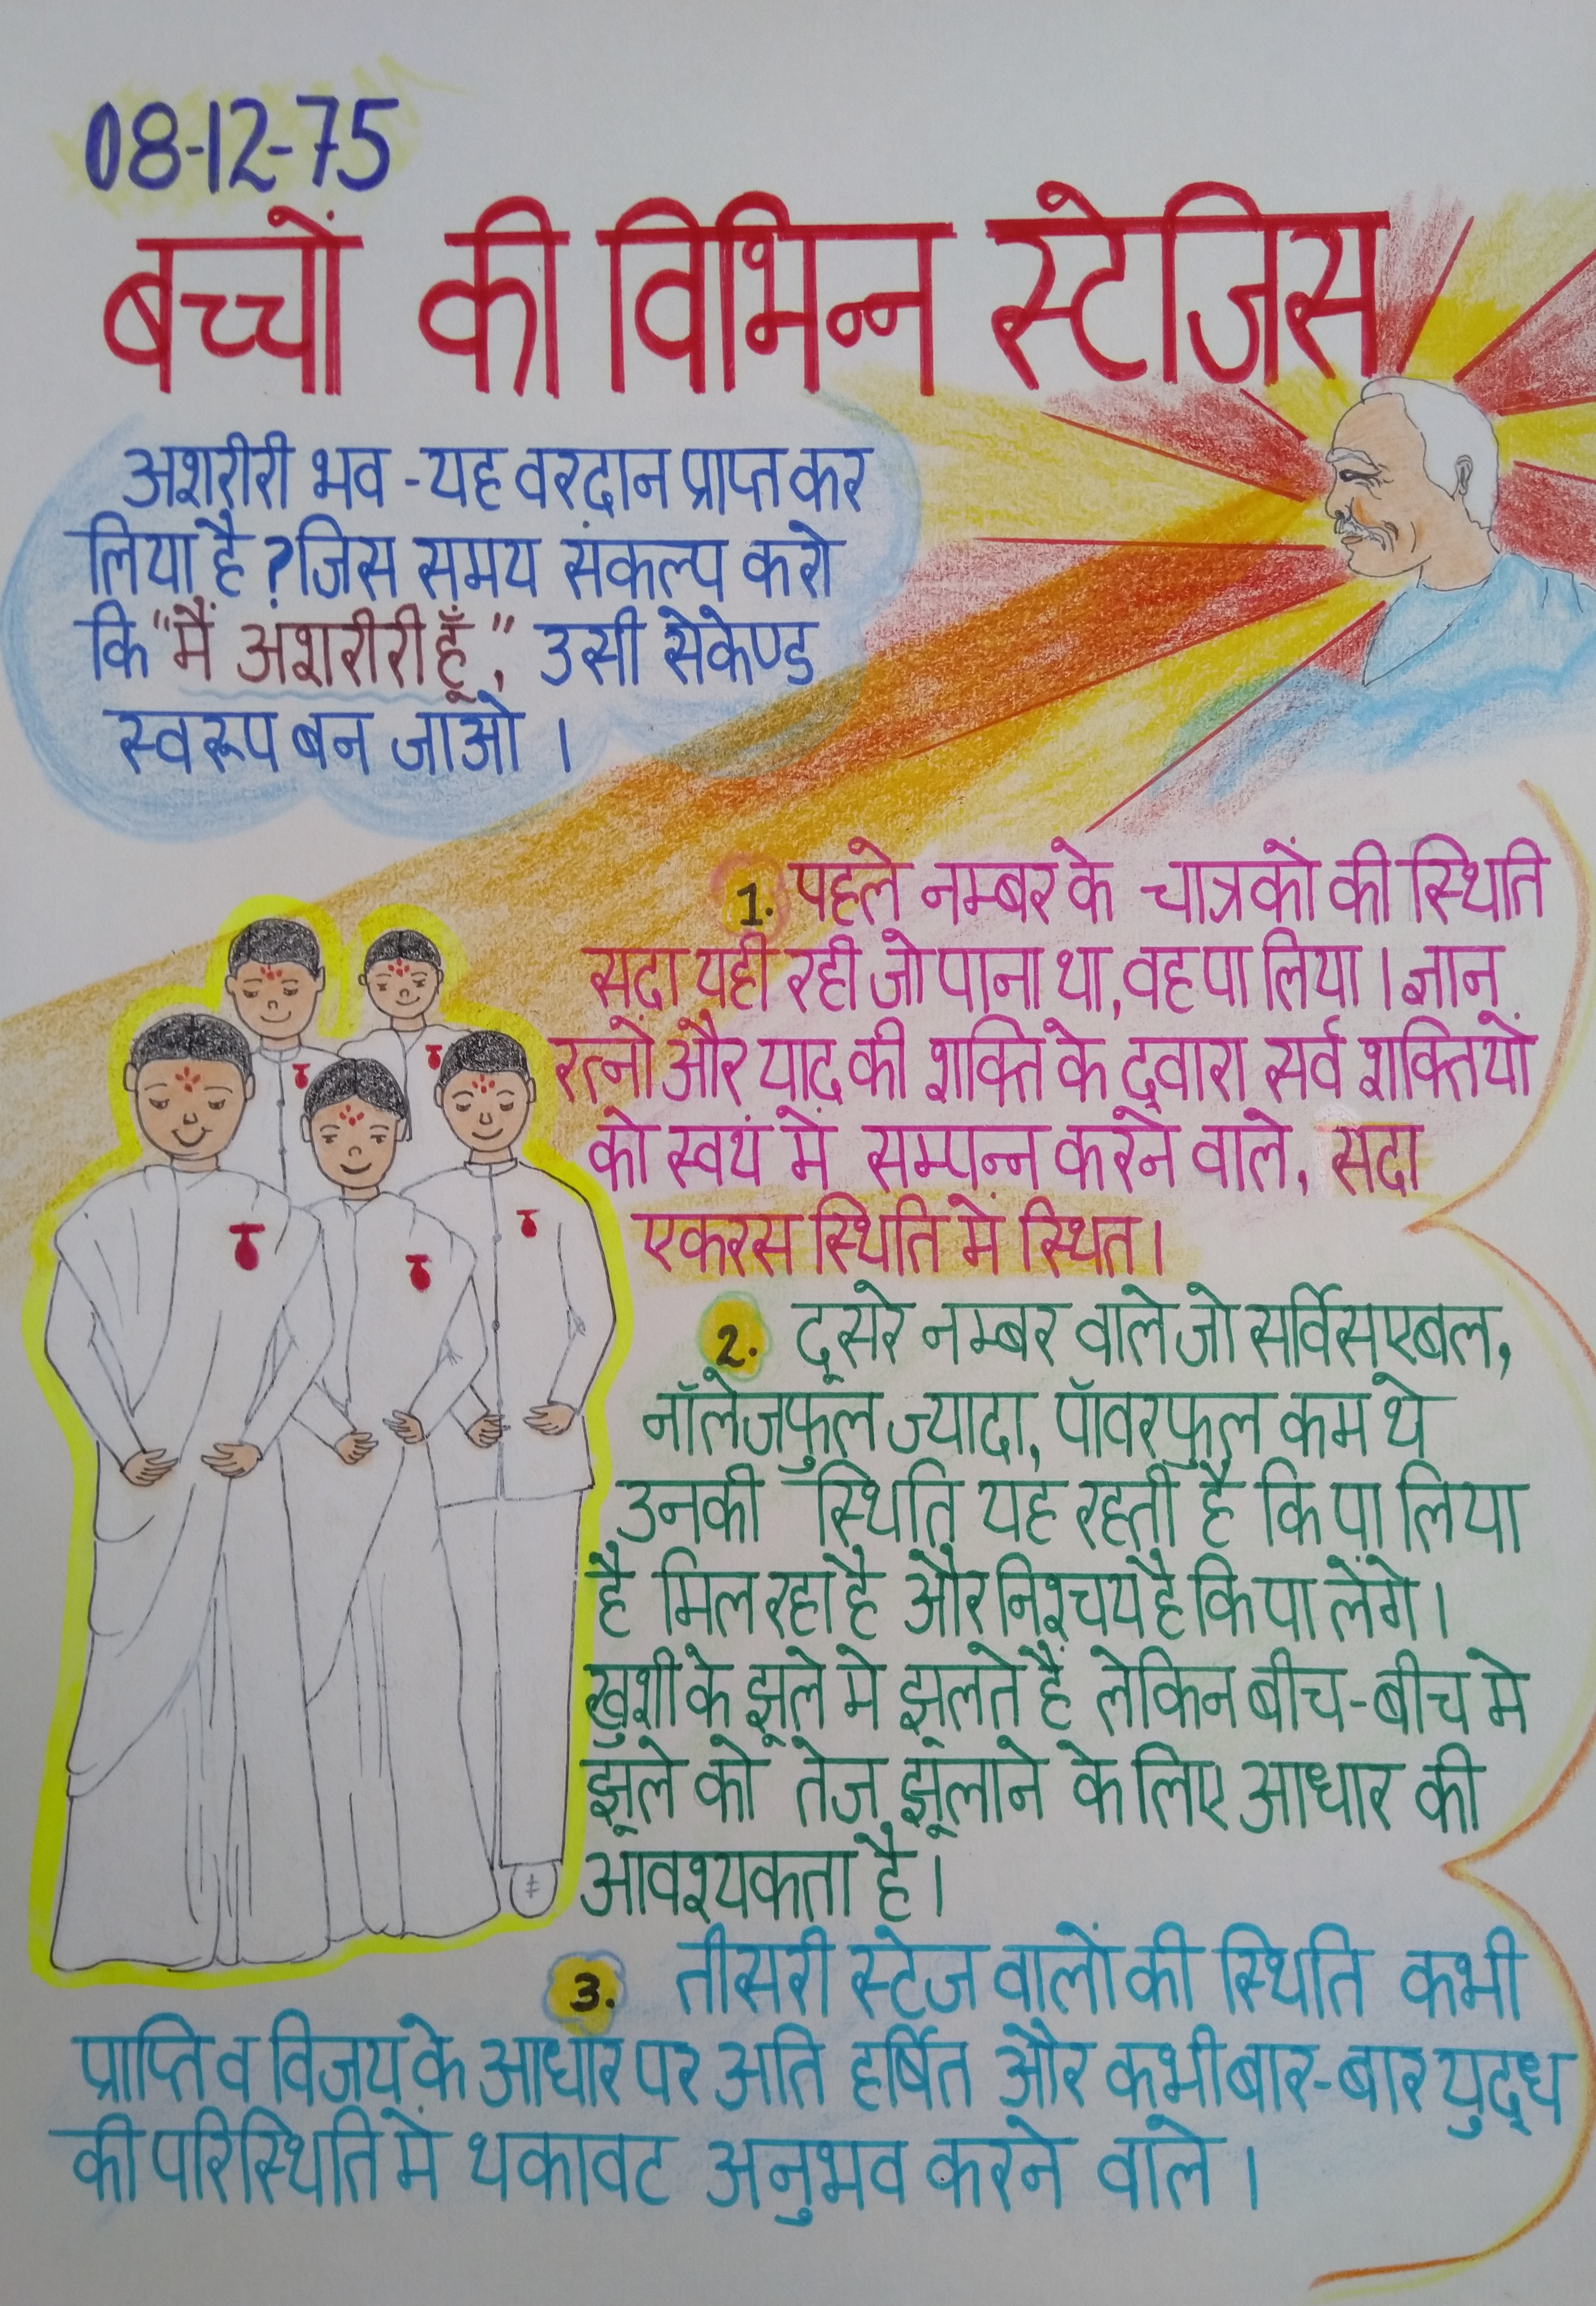 08-12-75
बच्चों की विभिन्न स्टेजिस
अशरीरी भव - यह वरदान प्राप्त कर
लिया है ? जिस समय संकल्प करो
कि "मैं अशरीरी हूँ," उसी सेकेण्ड
स्वरूप बन जाओ ।
1. पहले नम्बर के चात्रकों की स्थिति
सदा यही रही जो पाना था, वह पा लिया । ज्ञान
रत्नों और याद की शक्ति के द्वारा सर्व शक्तियों
को स्वयं में सम्पन्न करने वाले, सदा
एकरस स्थिति में स्थित ।
2. दूसरे नम्बर वाले जो सर्विसएबल,
नॉलेजफुल ज्यादा, पॉवरफुल कम थे
उनकी स्थिति यह रहती है कि पा लिया
है मिल रहा है और निश्चय है कि पा लेंगे ।
खुशी के झूले मे झूलते हैं लेकिन बीच-बीच मे
झूले को तेज झूलाने के लिए आधार की
आवश्यकता है ।
3. तीसरी स्टेज वालों की स्थिति कभी
प्राप्ति व विजय के आधार पर अति हर्षित और कभी बार-बार युद्ध
की परिस्थिति में थकावट अनुभव करने वाले ।